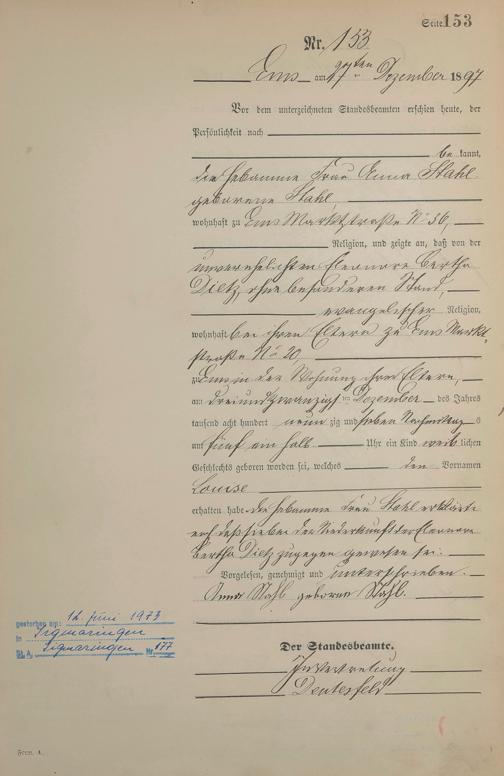 Seite 153
Nr. 153
Ems am 27ten Dezember 1897
Vor dem unterzeichneten Standesbeamten erschien heute, der
Persönlichkeit nach
be kannt,
die Hebamme Frau Anna Stahl
geborene Stahl,
wohnhaft zu Ems Marktstraße No 56,
Religion, und zeigte an, daß von der
unverehelichten Eleonore Bertha
Dietz, ohne besonderen Stand,
evangelischer Religion,
wohnhaft bei ihren Eltern zu Ems Markt-
straße No 20,
zu Ems in der Wohnung ihrer Eltern,
am dreiundzwanzigsten Dezember des Jahres
tausend acht hundert neun zig und sieben Nachmittags
um fünf ein halb Uhr ein Kind weib lichen
Geschlechts geboren worden sei, welches den Vornamen
Louise
erhalten habe. Die Hebamme Frau Stahl erklärte
noch daß sie bei der Niederkunft der Eleonore
Bertha Dietz zugegen gewesen sei.
Vorgelesen, genehmigt und unterschrieben.
Anna Stahl geborene Stahl.
gestorben am: 12. Juni 1973
in Sigmaringen
St. A. Sigmaringen Nr. 177
Der Standesbeamte.
In Vertretung
Deutesfeld
Form. A.